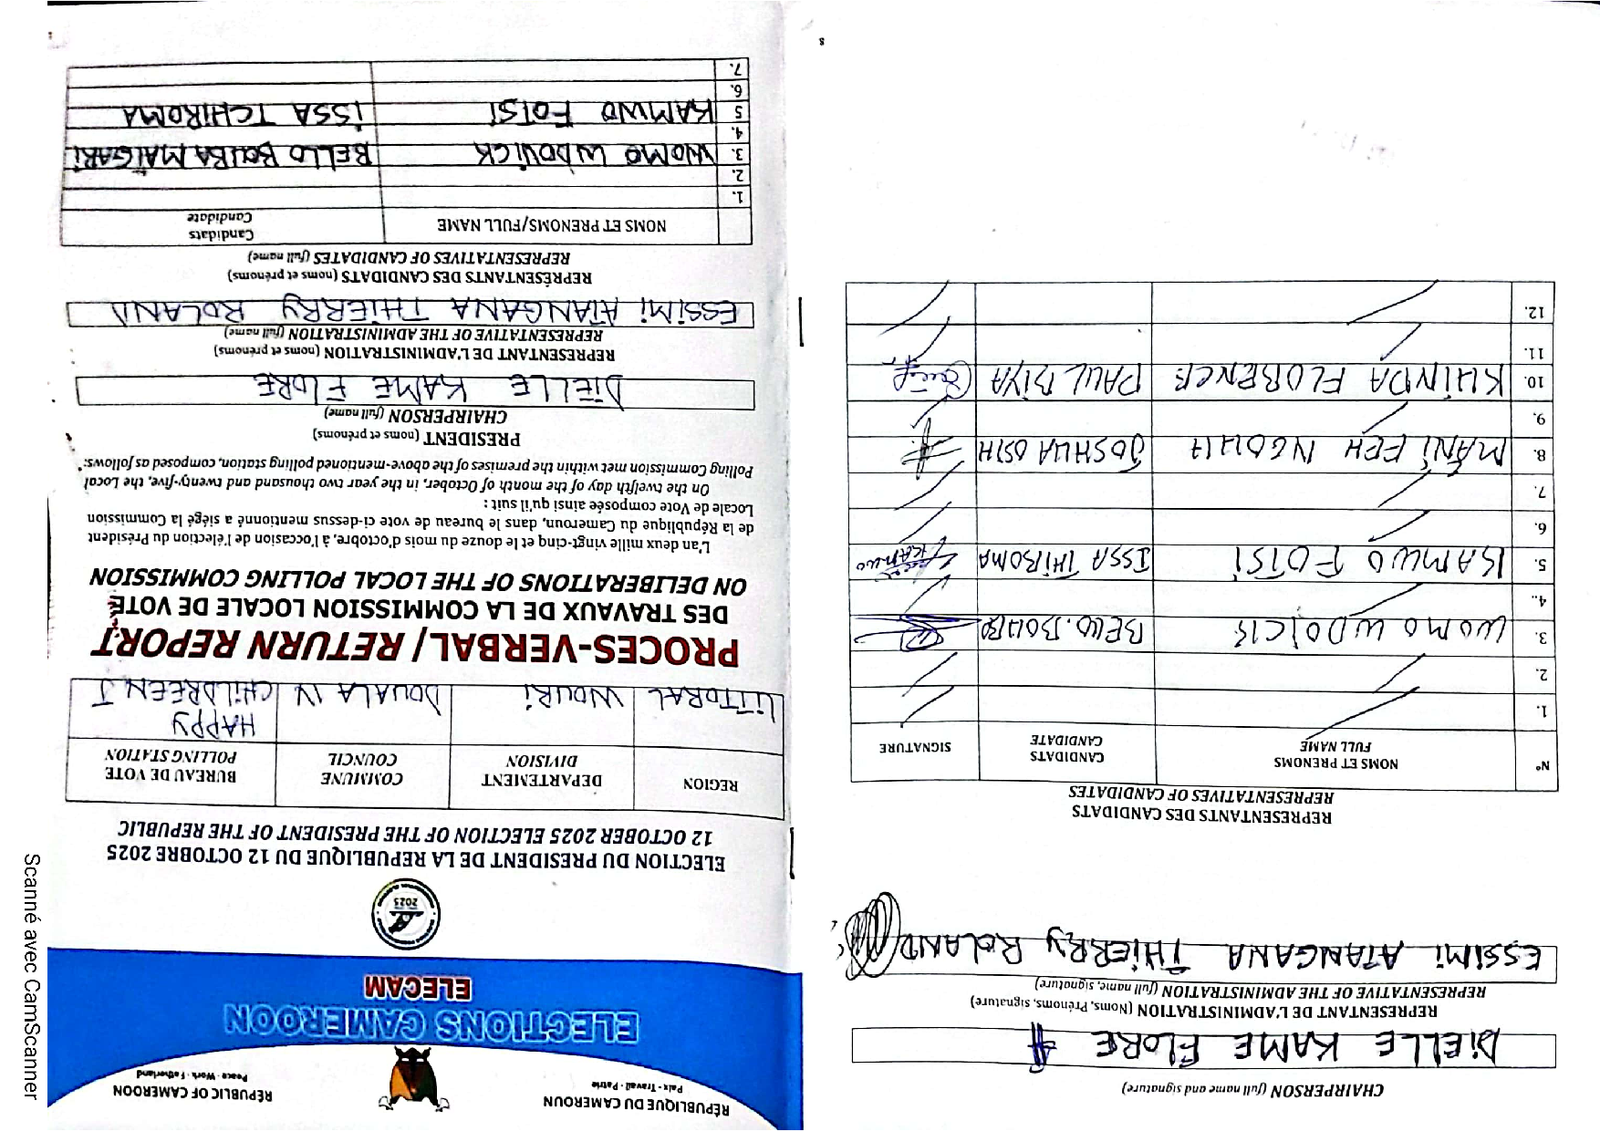 RÉPUBLIQUE DU CAMEROUN
Paix - Travail - Patrie
REPUBLIC OF CAMEROON
Peace - Work - Fatherland
ELECTIONS CAMEROON
ELECAM
2025
ELECTION DU PRESIDENT DE LA REPUBLIQUE DU 12 OCTOBRE 2025
12 OCTOBER 2025 ELECTION OF THE PRESIDENT OF THE REPUBLIC
REGION
DEPARTEMENT
DIVISION
COMMUNE
COUNCIL
BUREAU DE VOTE
POLLING STATION
LITTORAL
WOURI
DOUALA IV
HAPPY
CHILDREEN J
PROCES-VERBAL/ RETURN REPORT
DES TRAVAUX DE LA COMMISSION LOCALE DE VOTE
ON DELIBERATIONS OF THE LOCAL POLLING COMMISSION
L'an deux mille vingt-cinq et le douze du mois d'octobre, à l'occasion de l'élection du Président
de la République du Cameroun, dans le bureau de vote ci-dessus mentionné a siégé la Commission
Locale de Vote composée ainsi qu'il suit :
On the twelfth day of the month of October, in the year two thousand and twenty-five, the Local
Polling Commission met within the premises of the above-mentioned polling station, composed as follows:
PRESIDENT (noms et prénoms)
CHAIRPERSON (full name)
DIELLE KAME FLORE
REPRESENTANT DE L'ADMINISTRATION (noms et prénoms)
REPRESENTATIVE OF THE ADMINISTRATION (full name)
ESSIMI ATANGANA THIERRY ROLAND
REPRÉSENTANTS DES CANDIDATS (noms et prénoms)
REPRESENTATIVES OF CANDIDATES (full name)
NOMS ET PRENOMS/FULL NAME
Candidats
Candidate
1.
2.
3. WOMO WDOVICK BELLO BOUBA MAÏGARI
4.
5 KAMWO FOTSI ISSA TCHIROMA
6.
7.
CHAIRPERSON (full name and signature)
DIELLE KAME FLORE
REPRESENTANT DE L'ADMINISTRATION (Noms, Prénoms, signature)
REPRESENTATIVE OF THE ADMINISTRATION (full name, signature)
ESSIMI ATANGANA THIERRY ROLAND
REPRESENTANTS DES CANDIDATS
REPRESENTATIVES OF CANDIDATES
N°
NOMS ET PRENOMS
FULL NAME
CANDIDATS
CANDIDATE
SIGNATURE
1.
2.
3. WOMO WDOICK BELLO.BOUBA
4.
5. KAMWO FOTSI ISSA THIROMA KAMWO
6.
7.
8. MANI FEH NGOUH JOSHUA OSIH
9.
10. KUINDA FLORENCE PAUL BIYA
11.
12.
8
Scanné avec CamScanner